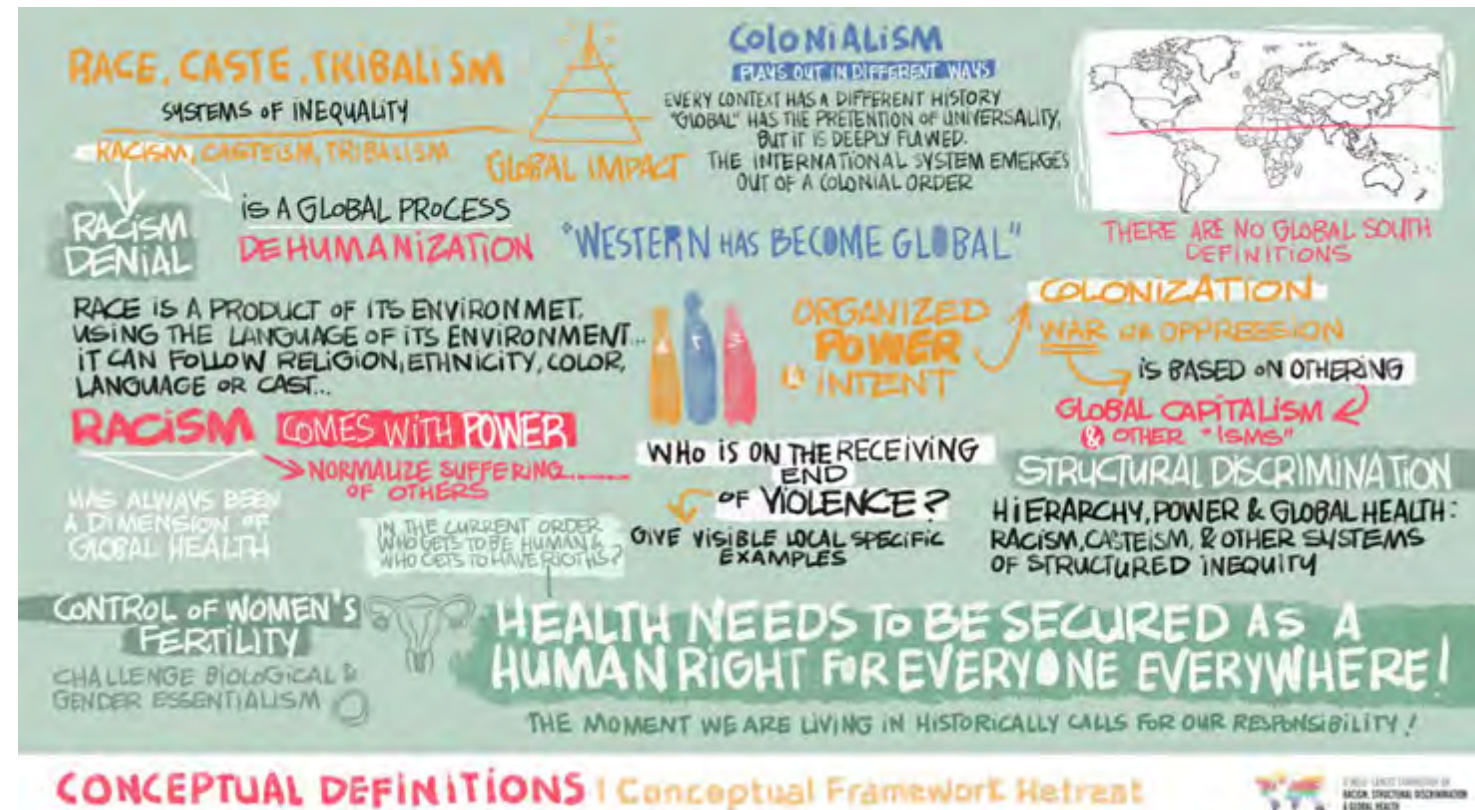 RACE, CASTE, TRIBALISM
SYSTEMS OF INEQUALITY
RACISM, CASTEISM, TRIBALISM
RACISM
DENIAL
IS A GLOBAL PROCESS
DEHUMANIZATION
GLOBAL IMPACT
COLONIALISM
PLAYS OUT IN DIFFERENT WAYS
EVERY CONTEXT HAS A DIFFERENT HISTORY
"GLOBAL" HAS THE PRETENTION OF UNIVERSALITY,
BUT IT IS DEEPLY FLAWED.
THE INTERNATIONAL SYSTEM EMERGES
OUT OF A COLONIAL ORDER
"WESTERN HAS BECOME GLOBAL"
THERE ARE NO GLOBAL SOUTH
DEFINITIONS
RACE IS A PRODUCT OF ITS ENVIRONMET.
USING THE LANGUAGE OF ITS ENVIRONMENT...
IT CAN FOLLOW RELIGION, ETHNICITY, COLOR,
LANGUAGE OR CAST...
RACISM COMES WITH POWER
NORMALIZE SUFFERING
OF OTHERS
HAS ALWAYS BEEN
A DIMENSION OF
GLOBAL HEALTH
ORGANIZED
POWER
& INTENT
COLONIZATION
WAR OR OPPRESSION
IS BASED ON OTHERING
GLOBAL CAPITALISM
& OTHER "ISMS"
WHO IS ON THE RECEIVING
END
OF VIOLENCE?
GIVE VISIBLE LOCAL SPECIFIC
EXAMPLES
STRUCTURAL DISCRIMINATION
HIERARCHY, POWER & GLOBAL HEALTH:
RACISM, CASTEISM, & OTHER SYSTEMS
OF STRUCTURED INEQUITY
IN THE CURRENT ORDER
WHO GETS TO BE HUMAN &
WHO GETS TO HAVE RIGHTS?
CONTROL OF WOMEN'S
FERTILITY
CHALLENGE BIOLOGICAL &
GENDER ESSENTIALISM
HEALTH NEEDS TO BE SECURED AS A
HUMAN RIGHT FOR EVERYONE EVERYWHERE!
THE MOMENT WE ARE LIVING IN HISTORICALLY CALLS FOR OUR RESPONSIBILITY!
CONCEPTUAL DEFINITIONS | Conceptual Framework Retreat
RACISM, STRUCTURAL DISCRIMINATION
& GLOBAL HEALTH